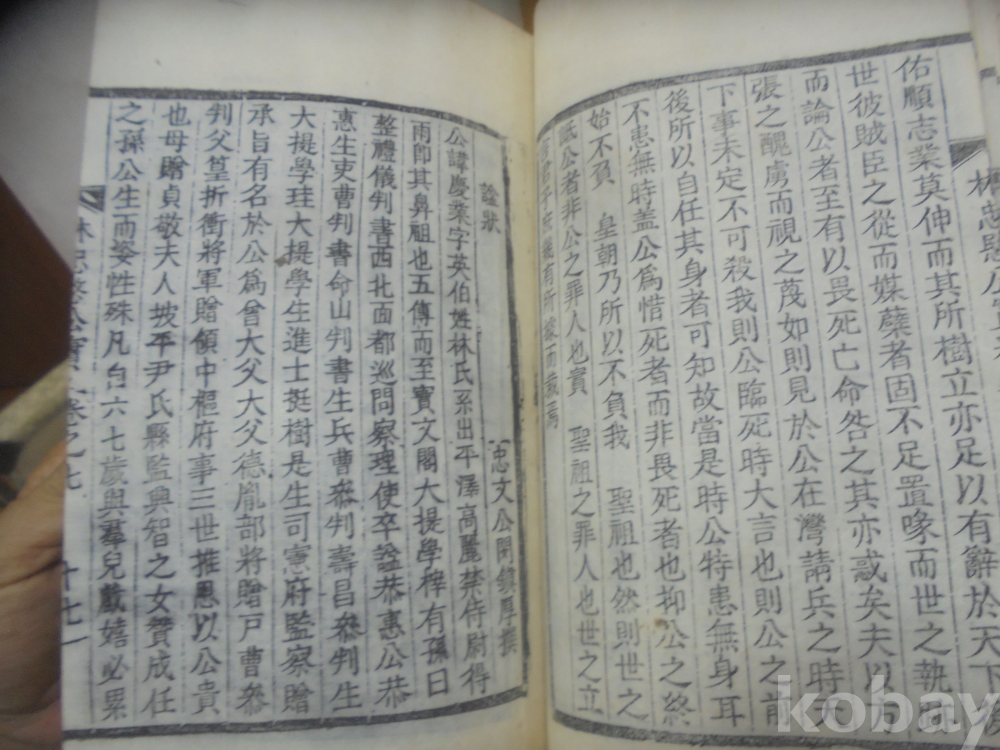 佑順志業莫伸而其所樹立亦足以有辭於天下後
世彼賊臣之從而媒蘖者固不足置喙而世之執
而論公者至有以畏死亡命咎之其亦惑矣夫以方
張之醜虜而視之蔑如則見於公在灣請兵之時大
下事未定不可殺我則公臨死時大言也則公之前
後所以自任其身者可知故當是時公特患無身耳
不患無時盖公爲惜死者而非畏死者也抑公之終
始不負 皇朝乃所以不負我 聖祖也然則世之
詆公者非公之罪人也實 聖祖之罪人也世之立
言君子庶幾有所
諡狀
忠文公閔鎭厚撰
公諱慶業字英伯姓林氏系出平澤高麗禁侍尉得
雨卽其鼻祖也五傳而至寶文閣大提學梓有孫曰
整禮儀判書西北面都巡問察理使卒諡恭惠公恭
惠生吏曹判書命山判書生兵曹叅判壽昌叅判生
大提學珪大提學生進士挺樹是生司憲府監察贈
承旨有名於公爲曾大父大父德胤部將贈戶曹叅
判父篁折衝將軍贈領中樞府事三世推恩以公貴
也母贈貞敬夫人坡平尹氏縣監興智之女贊成任
之孫公生而姿性殊凡自六七歲與羣兒戲嬉必累
林忠愍公實 卷之七 十七
林忠愍公實
kobay